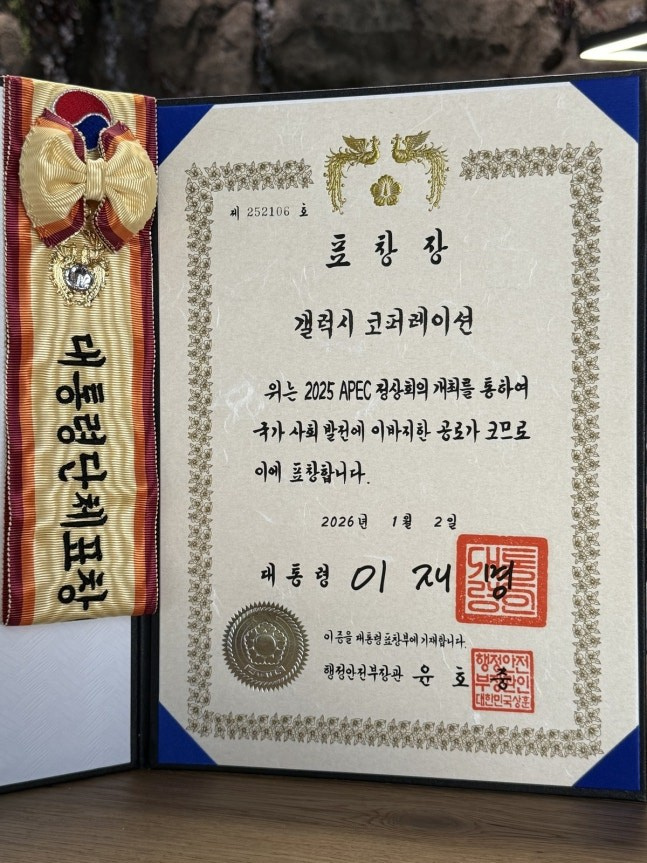 대통령단체표창
제 252106 호
표 창 장
갤럭시 코퍼레이션
위는 2025 APEC 정상회의 개최를 통하여
국가 사회 발전에 이바지한 공로가 크므로
이에 표창합니다.
2026년 1월 2일
대통령 이 재 명
대통령의인
이 증을 대통령표창부에 기재합니다.
행정안전부장관 윤 호 중
행정안전
부장관인
대한민국상훈